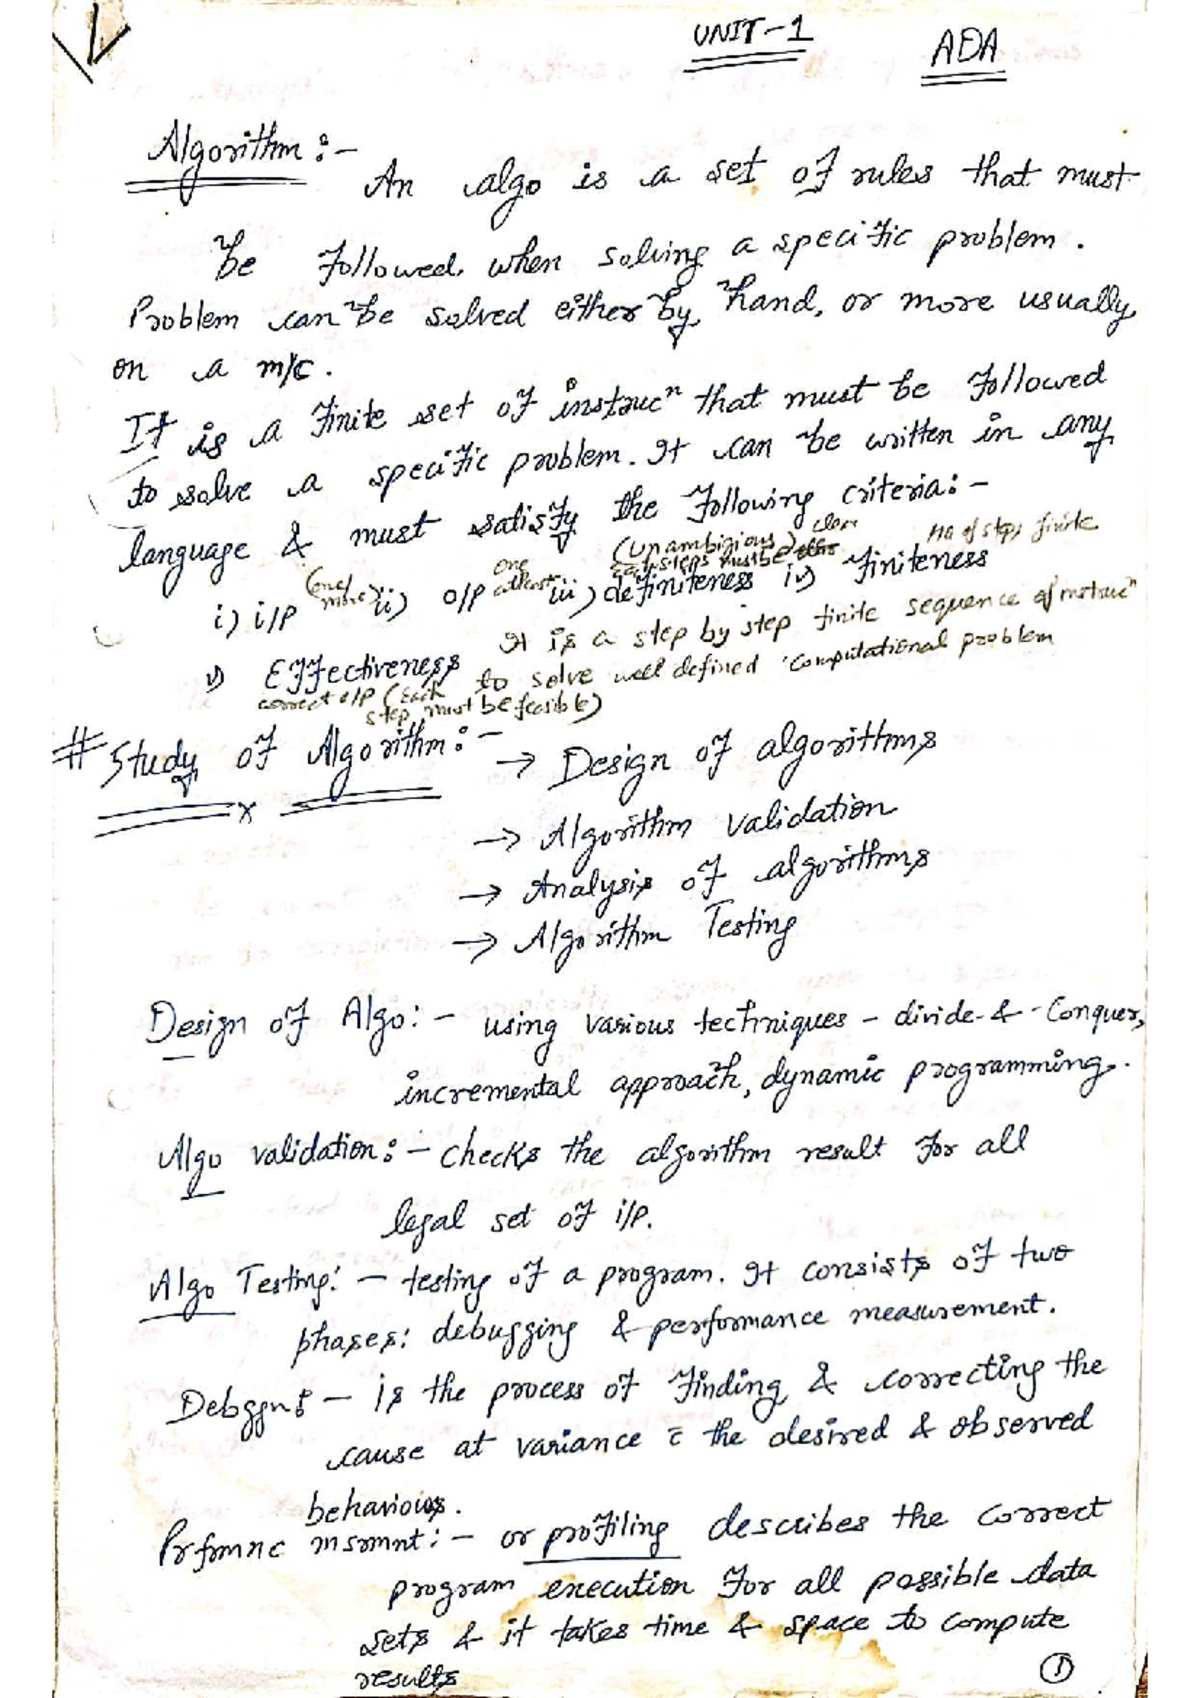 UNIT-1
ADA
Algorithm :-
An algo is a set of rules that must
be followed, when solving a specific problem.
Problem can be solved either by hand, or more usually
on a m/c.
It is a finite set of instrucⁿ that must be followed
to solve a specific problem. It can be written in any
language & must satisfy the following criteria:-
(one/more) one atleast (unambigious) clear No of steps finite
each steps must be
i) i/p ii) o/p iii) definiteness iv) finiteness
It is a step by step finite sequence of instrucⁿ
v) Effectiveness to solve well defined computational problem
correct o/p (Each
step must be feasible)
# Study of Algorithm :- → Design of algorithms
→ Algorithm validation
→ Analysis of algorithms
→ Algorithm Testing
Design of Algo :- using various techniques - divide-&-Conquer,
incremental approach, dynamic programming.
Algo validation :- checks the algorithm result for all
legal set of i/p.
Algo Testing: - testing of a program. It consists of two
phases: debugging & performance measurement.
Debggng - is the process of finding & correcting the
cause at variance c̄ the desired & observed
behaviours.
Prfrmnc msrmnt :- or profiling describes the correct
program execution for all possible data
sets & it takes time & space to compute
results
1